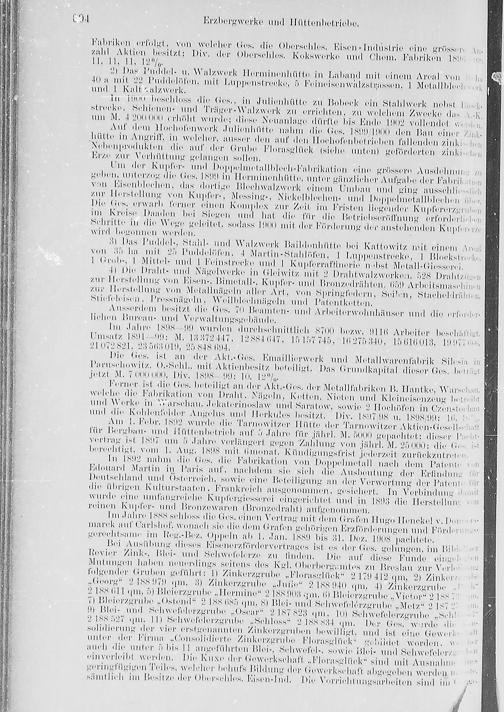 694 Erzbergwerke und Hüttenbetriebe.
Fabriken erfolgt, von welcher Ges. die Oberschles. Eisen-Industrie eine grössere
zahl Aktien besitzt; Div. der Oberschles. Kokswerke und Chem. Fabriken
11, 11, 11, 12%.
2) Das Puddel- u. Walzwerk Herminenhütte in Laband mit einem Areal von
40 a mit 22 Puddelöfen, mit Luppenstrecke, 5 Feineisenwalzstrassen, 1 Metallblech
und 1 Kaltwalzwerk.
In 1900 beschloss die Ges., in Julienhütte zu Bobeck ein Stahlwerk nebst
strecke, Schienen- und Träger-Walzwerk zu errichten, zu welchem Zwecke das
um M. 4 200 000 erhöht wurde; diese Neuanlage dürfte bis Ende 1902 vollendet
Auf dem Hochofenwerk Julienhütte nahm die Ges. 1899/1900 den Bau einer
hütte in Angriff, in welcher, ausser den auf den Hochofenbetrieben fallenden
Nebenprodukten die auf der Grube Florasglück (siehe unten) geförderten
Erze zur Verhüttung gelangen sollen.
Um der Kupfer- und Doppelmetallblech-Fabrikation eine grössere Ausdehnung
geben, unterzog die Ges. 1899 in Herminenhütte, unter gänzlicher Aufgabe der
von Eisenblechen, das dortige Blechwalzwerk einem Umbau und ging
zur Herstellung von Kupfer-, Messing-, Nickelblechen- und Doppelmetallblechen
Die Ges. erwarb ferner einen Komplex zur Zeit im Fristen liegender
im Kreise Daaden bei Siegen und hat die für die Betriebseröffnung
Schritte in die Wege geleitet, sodass 1900 mit der Förderung der anstehenden
wird begonnen werden.
3) Das Puddel-, Stahl- und Walzwerk Baildonhütte bei Kattowitz mit einem
von 35 ha mit 25 Puddelöfen, 4 Martin-Stahlöfen, 1 Luppenstrecke, 1
1 Grob-, 1 Mittel- und 1 Feinstrecke und 1 Kupferraffinerie nebst Metall-Giesserei.
4) Die Draht- und Nägelwerke in Gleiwitz mit 2 Drahtwalzwerken, 528
zur Herstellung von Eisen-, Bimetall-, Kupfer- und Bronzedrähten, 659
zur Herstellung von Metallnägeln aller Art, von Springfedern, Seilen,
Stiefeleisen, Pressnägeln, Weilblechnägeln und Patentketten.
Ausserdem besitzt die Ges. 70 Beamten- und Arbeiterwohnhäuser und die
lichen Bureau- und Verwaltungsgebäude.
Im Jahre 1898—99 wurden durchschnittlich 8700 bezw. 9116 Arbeiter
Umsatz 1891—99: M. 13 372 447, 12 884 647, 15 157 745, 16 275 340, 15 616 013,
21 072 821, 23 563 019, 25 848 694.
Die Ges. ist an der Akt.-Ges. Emaillierwerk und Metallwarenfabrik Silesia
Paruschowitz, O.-Schl. mit Aktienbesitz beteiligt. Das Grundkapital dieser Ges.
jetzt M. 7 000 000, Div. 1898—99: 10, 12%.
Ferner ist die Ges. beteiligt an der Akt.-Ges. der Metallfabriken B. Hantke,
welche die Fabrikation von Draht, Nägeln, Ketten, Nieten und Kleineisenzeug
und Werke in Warschau, Jekaterinoslaw und Saratow, sowie 2 Hochöfen in
und die Kohlenfelder Angelus und Herkules besitzt. Div. 1897/98 u. 1898/99:
Am 1. Febr. 1892 wurde die Tarnowitzer Hütte der Tarnowitzer
für Bergbau- und Hüttenbetrieb auf 5 Jahre für jährl. M. 5000 gepachtet; dieser
vertrag ist 1897 um 5 Jahre verlängert gegen Zahlung von jährl. M. 25 000; die
berechtigt, vom 1. Aug. 1898 mit 6monat. Kündigungsfrist jederzeit zurückzutreten.
In 1892 nahm die Ges. die Fabrikation von Doppelmetall nach dem Patente
Edouard Martin in Paris auf, nachdem sie sich die Ausbeutung der Erfindung
Deutschland und Österreich, sowie eine Beteiligung an der Verwertung der Patente
die übrigen Kulturstaaten, Frankreich ausgenommen, gesichert. In Verbindung
wurde eine umfangreiche Kupfergiesserei eingerichtet und in 1893 die Herstellung
reinen Kupfer- und Bronzewaren (Bronzedraht) aufgenommen.
Im Jahre 1888 schloss die Ges. einen Vertrag mit dem Grafen Hugo Henckel v.
marck auf Carlshof, wonach sie die dem Grafen gehörigen Erzförderungen und
gerechtsame im Reg.-Bez. Oppeln ab 1. Jan. 1889 bis 31. Dez. 1908 pachtete.
Bei Ausübung dieses Eisenerzfördervertrages ist es der Ges. gelungen, im
Revier Zink-, Blei- und Schwefelerze zu finden. Die auf diese Funde
Mutungen haben neuerdings seitens des Kgl. Oberbergamtes zu Breslau zur
folgender Gruben geführt: 1) Zinkerzgrube „Florasglück“ 2 179 412 qm, 2)
„Georg“ 2 188 979 qm, 3) Zinkerzgrube „Juice“ 2 188 940 qm, 4) Zinkerzgrube
2 188 611 qm, 5) Bleierzgrube „Hermine“ 2 188 903 qm, 6) Bleierzgrube „Victor“
7) Bleierzgrube „Ostend“ 2 188 685 qm, 8) Blei- und Schwefelerzgrube „Metz“
9) Blei- und Schwefelerzgrube „Oscar“ 2 187 823 qm, 10) Schwefelerzgrube
2 188 527 qm, 11) Schwefelerzgrube „Schloss“ 2 188 834 qm. Der Ges. wurde die
solidierung der vier erstgenannten Zinkerzgruben bewilligt, und ist eine
unter der Firma „Consolidierte Zinkerzgrube Florasglück“ gebildet worden,
auch die unter 5 bis 11 angeführten Blei-, Schwefel-, sowie Blei- und
einverleibt werden. Die Kuxe der Gewerkschaft „Florasglück“ sind mit Ausnahme
geringfügigen Teiles, welcher behufs Bildung der Gewerkschaft abgegeben werden
sämtlich im Besitze der Oberschles. Eisen-Ind. Die Vorrichtungsarbeiten sind im